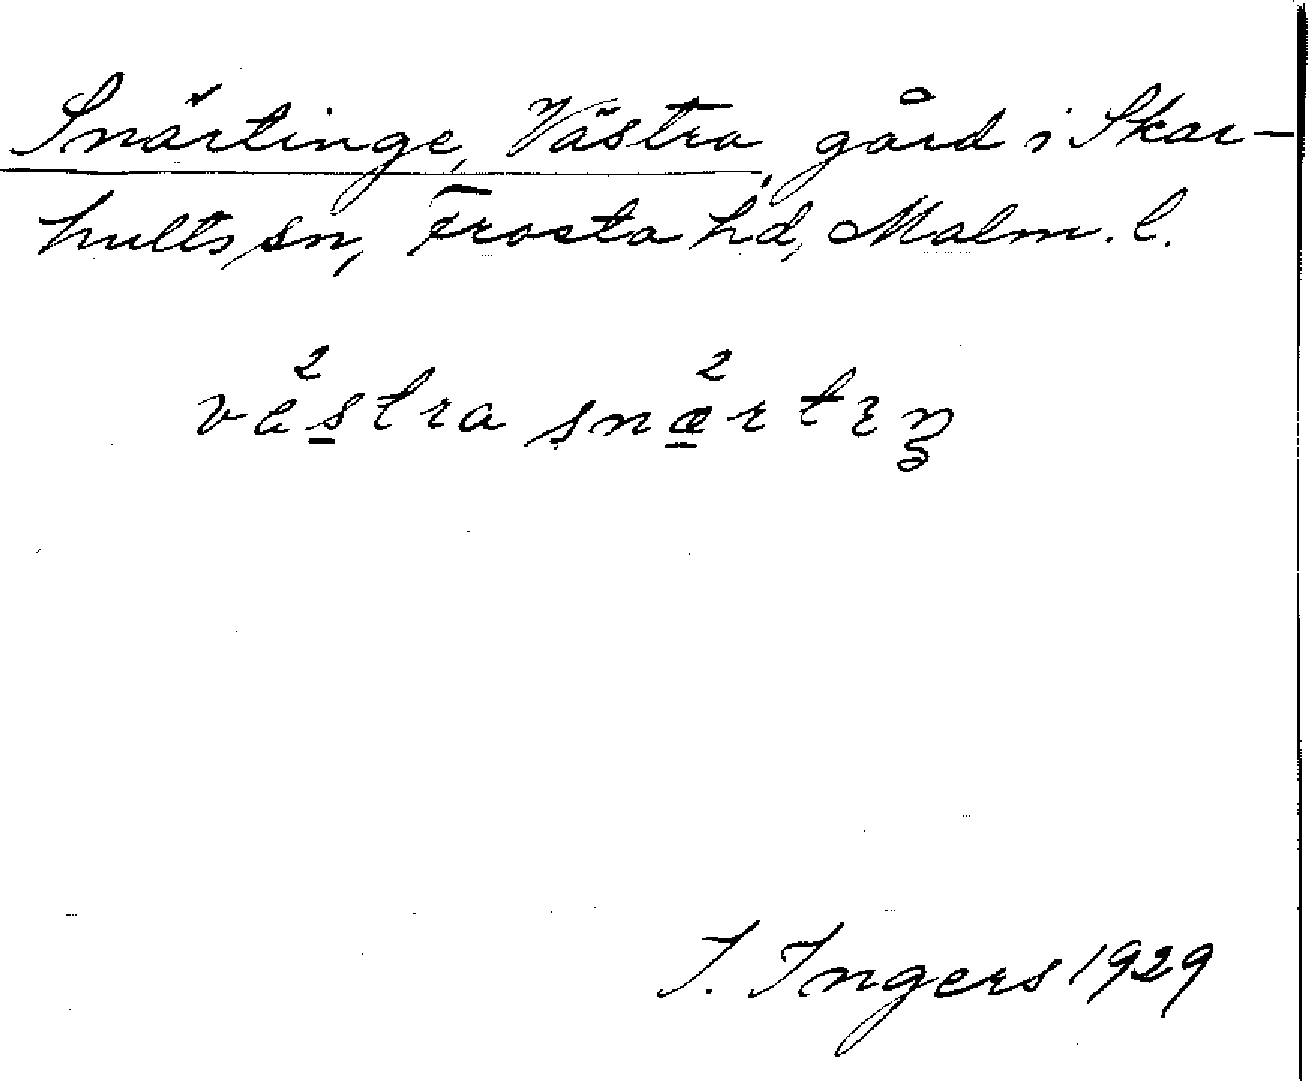 Snärtinge, Västra, gård i Skar-
hults sn, Frosta hd, Malm. l.
västra snærtɪŋ
I. Ingers 1929